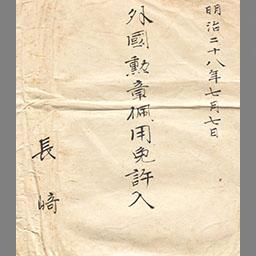 明治二十八年七月七日
外國勲章佩用免許入
長﨑